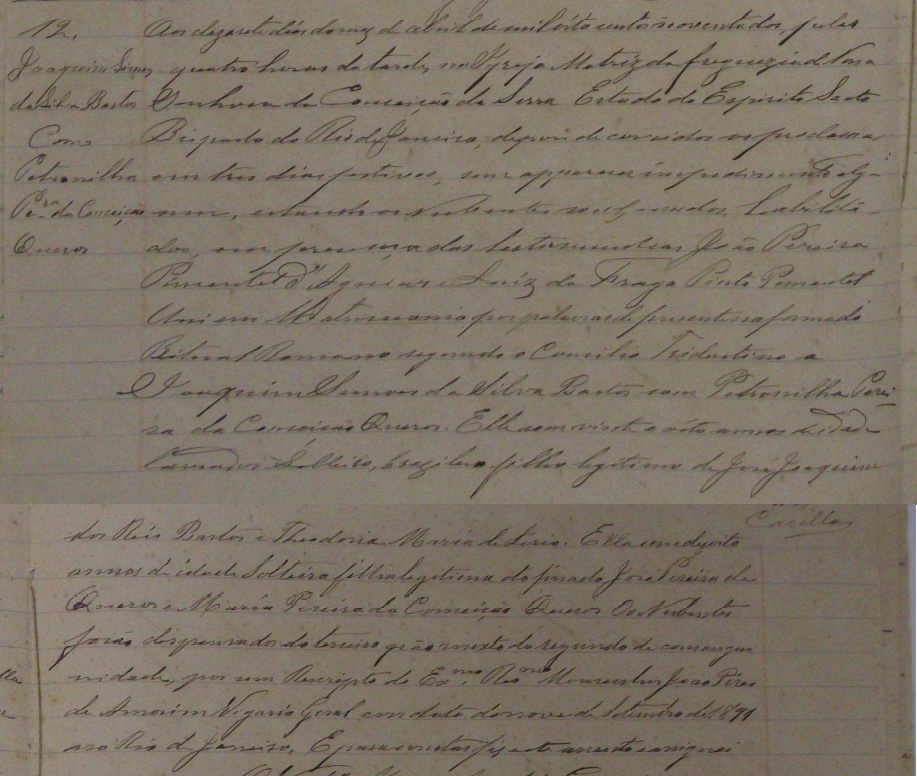 12.
Joaquim Simões
da Silva Bastos
Com
Petronilha
Per.ra da Conceição
Queros
Aos dezasete dias do mez d'abril de mil oito centos noventa dos, pelas
quatro horas da tarde, na Igreja Matriz da freguezia d Nossa
Senhora da Conceição da Serra Estado do Espirito Santo
Bispado do Rio de Janeiro, depois de corridos os proclamas
em tres dias festivos, sem apparecer impedimento alg-
um, estando os Nubentes confessados, habilita-
dos, em presença das testemunhas João Pereira
Pimentel d'Aguiar e Luiz da Fraga Pinto Pimentel
Uni em Matrimonio por palavras de presente na forma do
Ritual Romano segundo o Concilio Tridentino a
Joaquim Simoes da Silva Bastos com Petronilha Perei-
ra da Conceição Queros. Elle com vinte e oito annos de idade
Lavrador Solteiro, brazileiro filho legitimo de José Joaquim
dos Reis Bastos e Theodoria Maria de Lirio. Ella com dezoito
annos de idade Solteira filha legitima do finado José Pereira de
Queros e Maria Pereira da Conceição Queros Os Nubentes
forão dispensados do terceiro gráo mixto do segundo de consangui
nidade, por um Rescripto do Ex.mo Rev.mo Monsenhor João Pires
de Amorim Vigario Geral em data do nove de Setembro de 1891
no Rio de Janeiro. E para constar fiz este assento e assignei